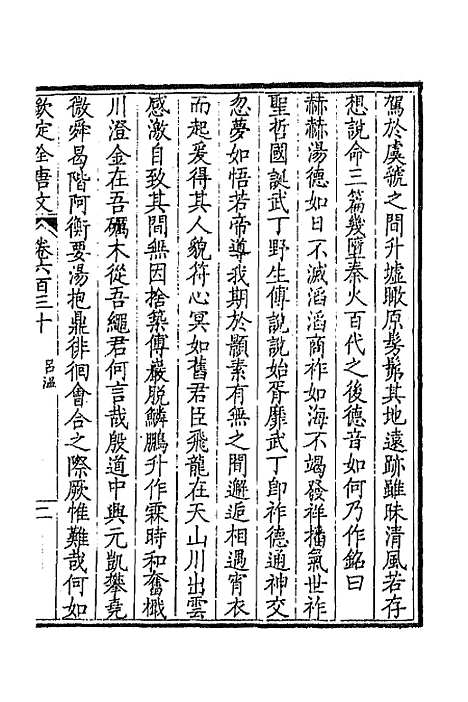 駕於虞虢之間升墟瞰原髣髴其地遠跡雖昧清風若存
想說命三篇幾墮秦火百代之後德音如何乃作銘曰
赫赫湯德如日不滅滔滔商祚如海不竭發祥播氣世祚
聖哲國誕武丁野生傅說說始胥靡武丁卽祚德通神交
忽夢如悟若帝導我期於顥素有無之間邂逅相遇宵衣
而起爰得其人貌符心冥如舊君臣飛龍在天山川出雲
感激自致其間無因捨築傅巖脫鱗鵬升作霖時和奮檝
川澄金在吾礪木從吾繩君何言哉殷道中興元凱攀堯
微舜曷階阿衡要湯抱鼎徘徊會合之際厥惟難哉何如
欽定全唐文
卷六百三十
呂溫
二